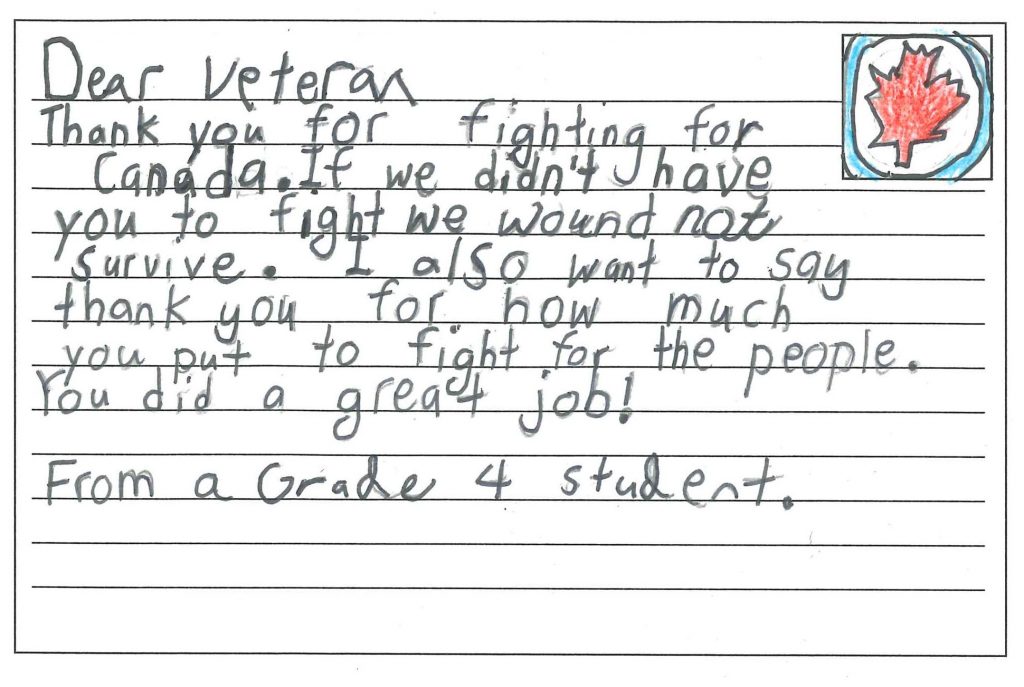 Dear Veteran
Thank you for fighting for
Canada. If we didn't have
you to fight we wound not
survive. I also want to say
thank you for how much
you put to fight for the people.
You did a great job!
From a Grade 4 student.